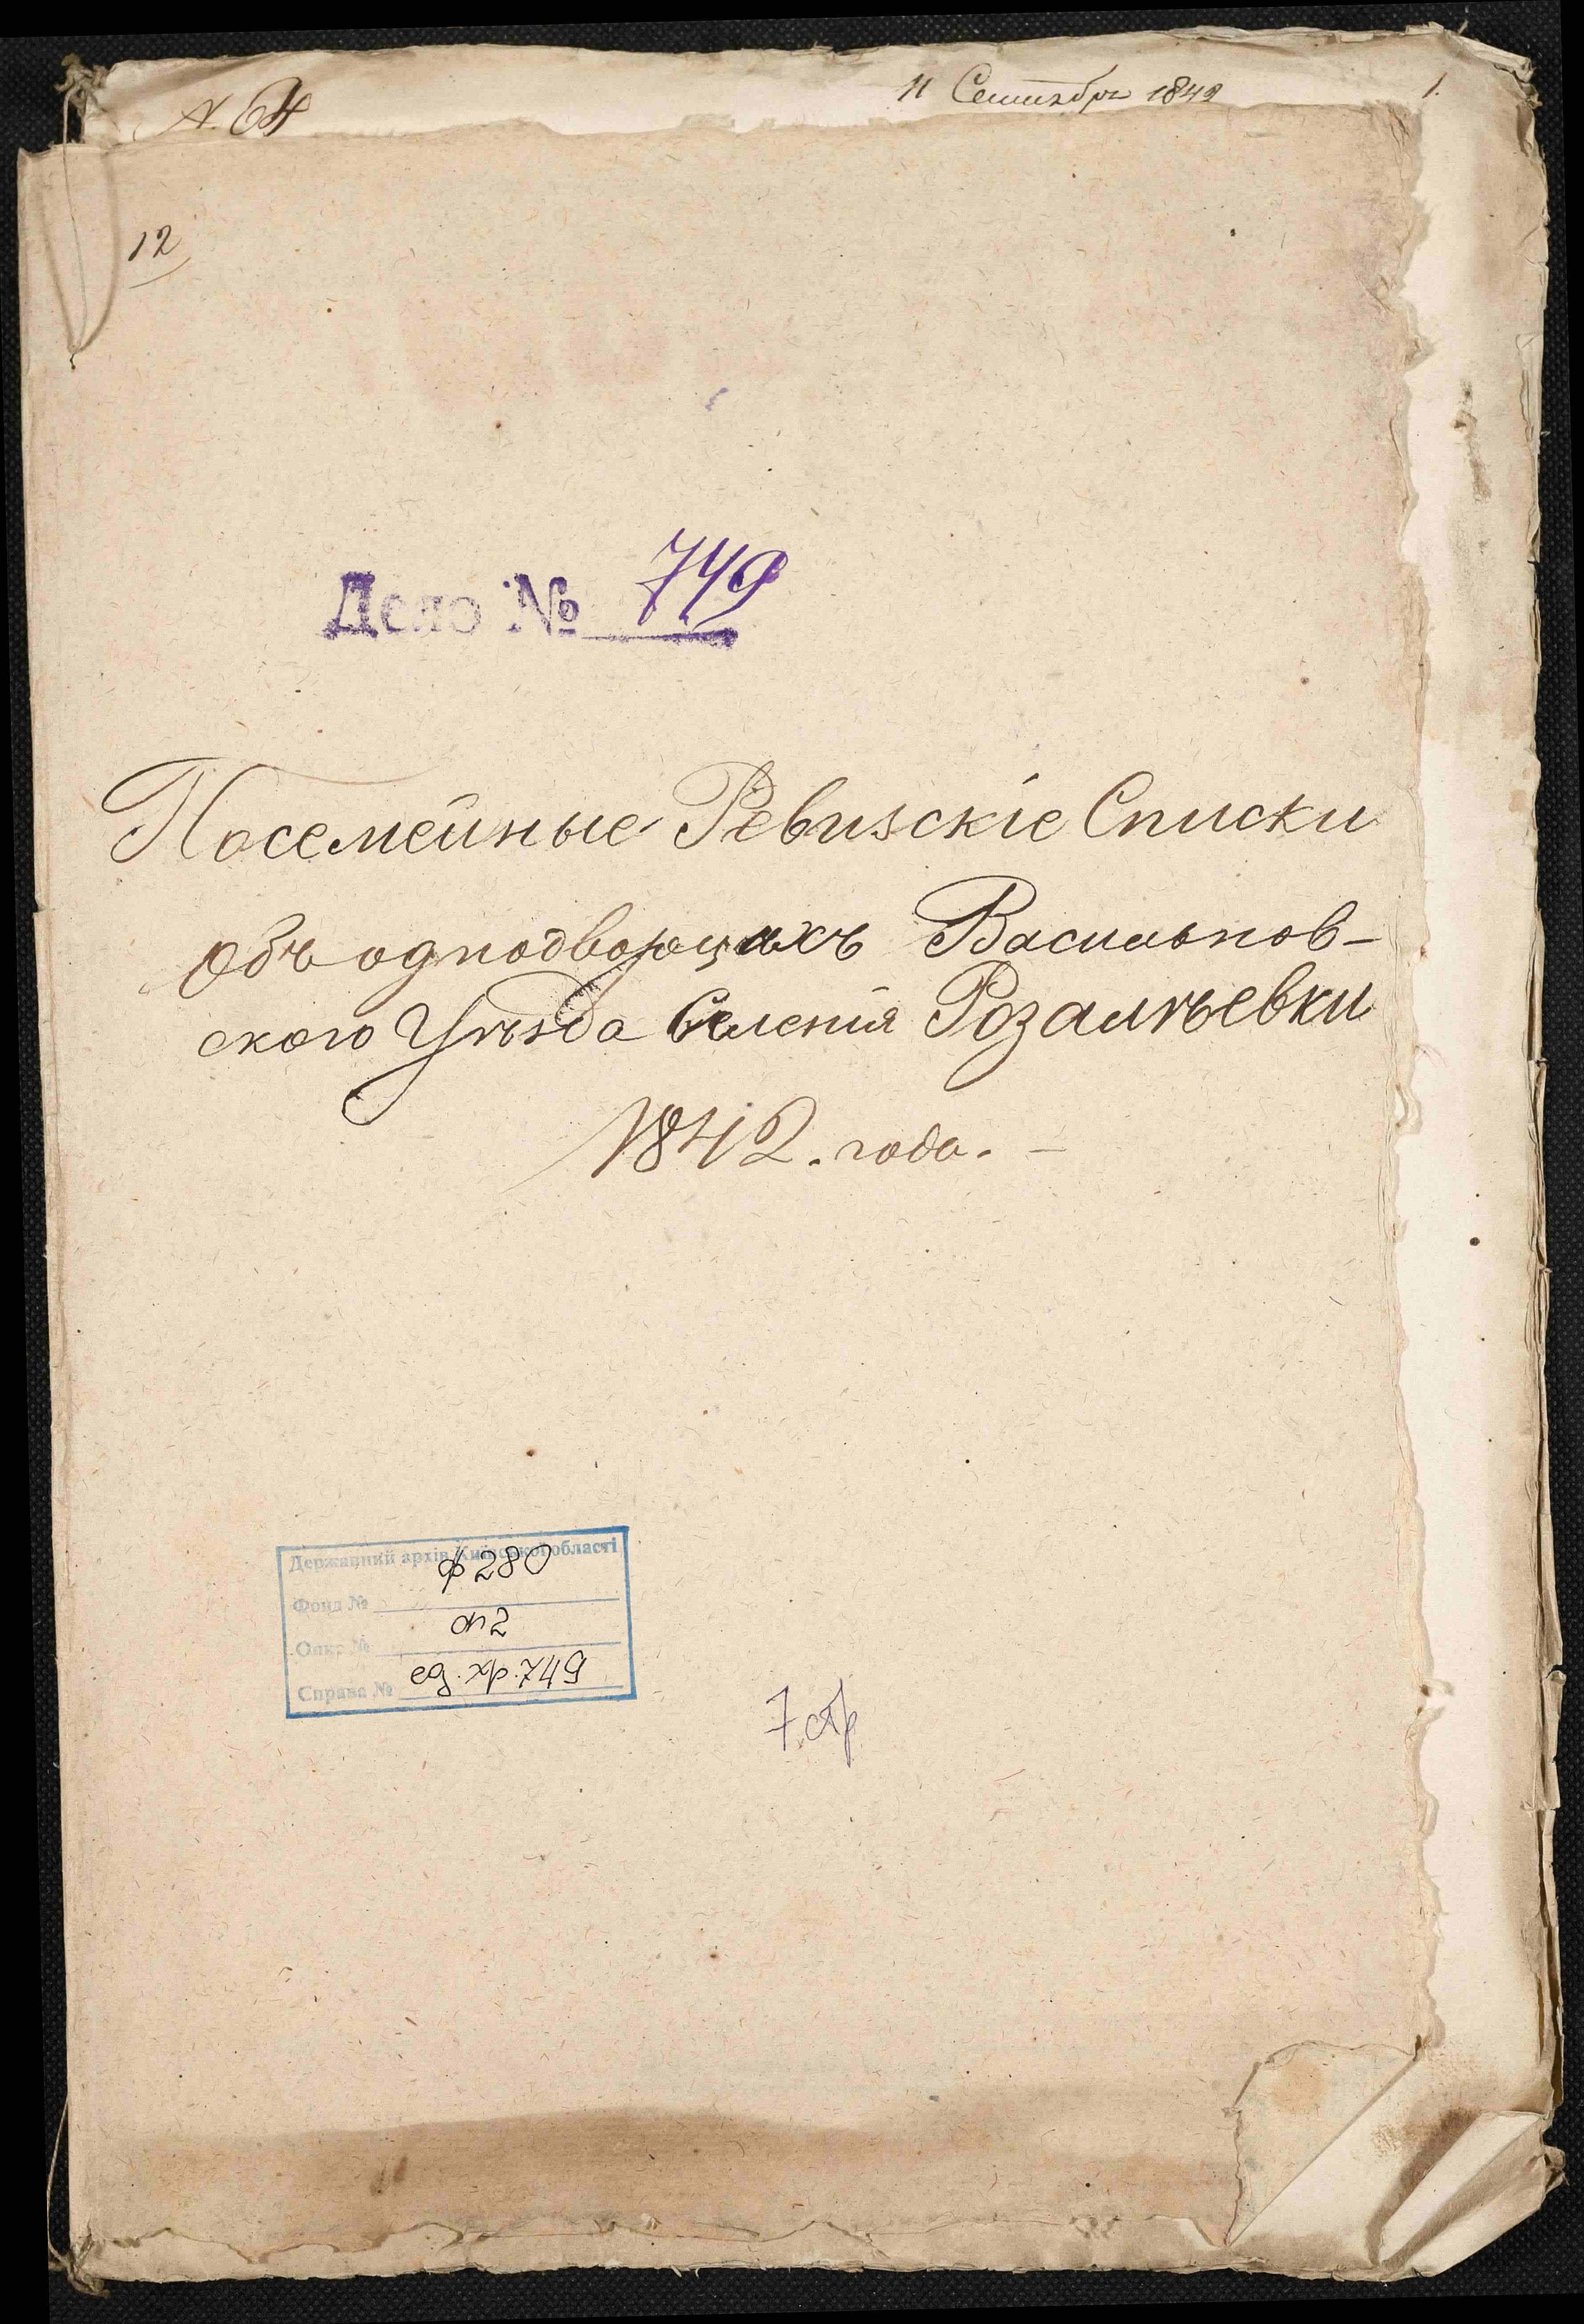 11 Сентября 1842
1.
12
Дело № 749
Посемейные Ревизскіе Списки
Объ однодворцахъ Васильков-
ского Уѣзда Селенія Розалѣевки
1842. года. —
Державний архів Київської області
Фонд № ф 280
Опис № оп 2
Справа № ед. хр. 749
7 стр